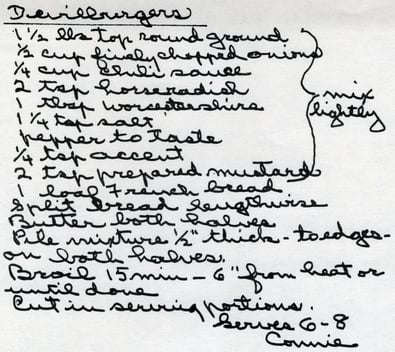 Devilburgers
1 1/2 lbs top round ground
1/2 cup finely chopped onions
1/4 cup chili sauce
2 tsp horseradish
1 tbsp worcestershire
1 1/4 tsp salt
pepper to taste
1/4 tsp accent
2 tsp prepared mustard
mix
lightly
1 loaf French bread
Split bread lengthwise
Butter both halves
Pile mixture 1/2" thick - to edges -
on both halves.
Broil 15 min - 6" from heat or
until done
Cut in serving portions.
Serves 6-8
Connie